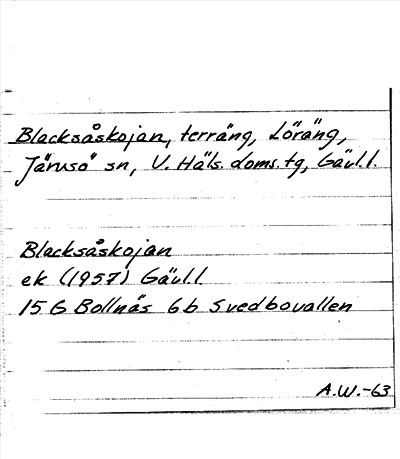 Blacksåskojan, terräng, Löräng,
Järvsö sn, V. Häls. doms. tg, Gävl.l.
Blacksåskojan
ek (1957) Gävl.l
15 G Bollnäs 6b Svedbovallen
A.W.-63